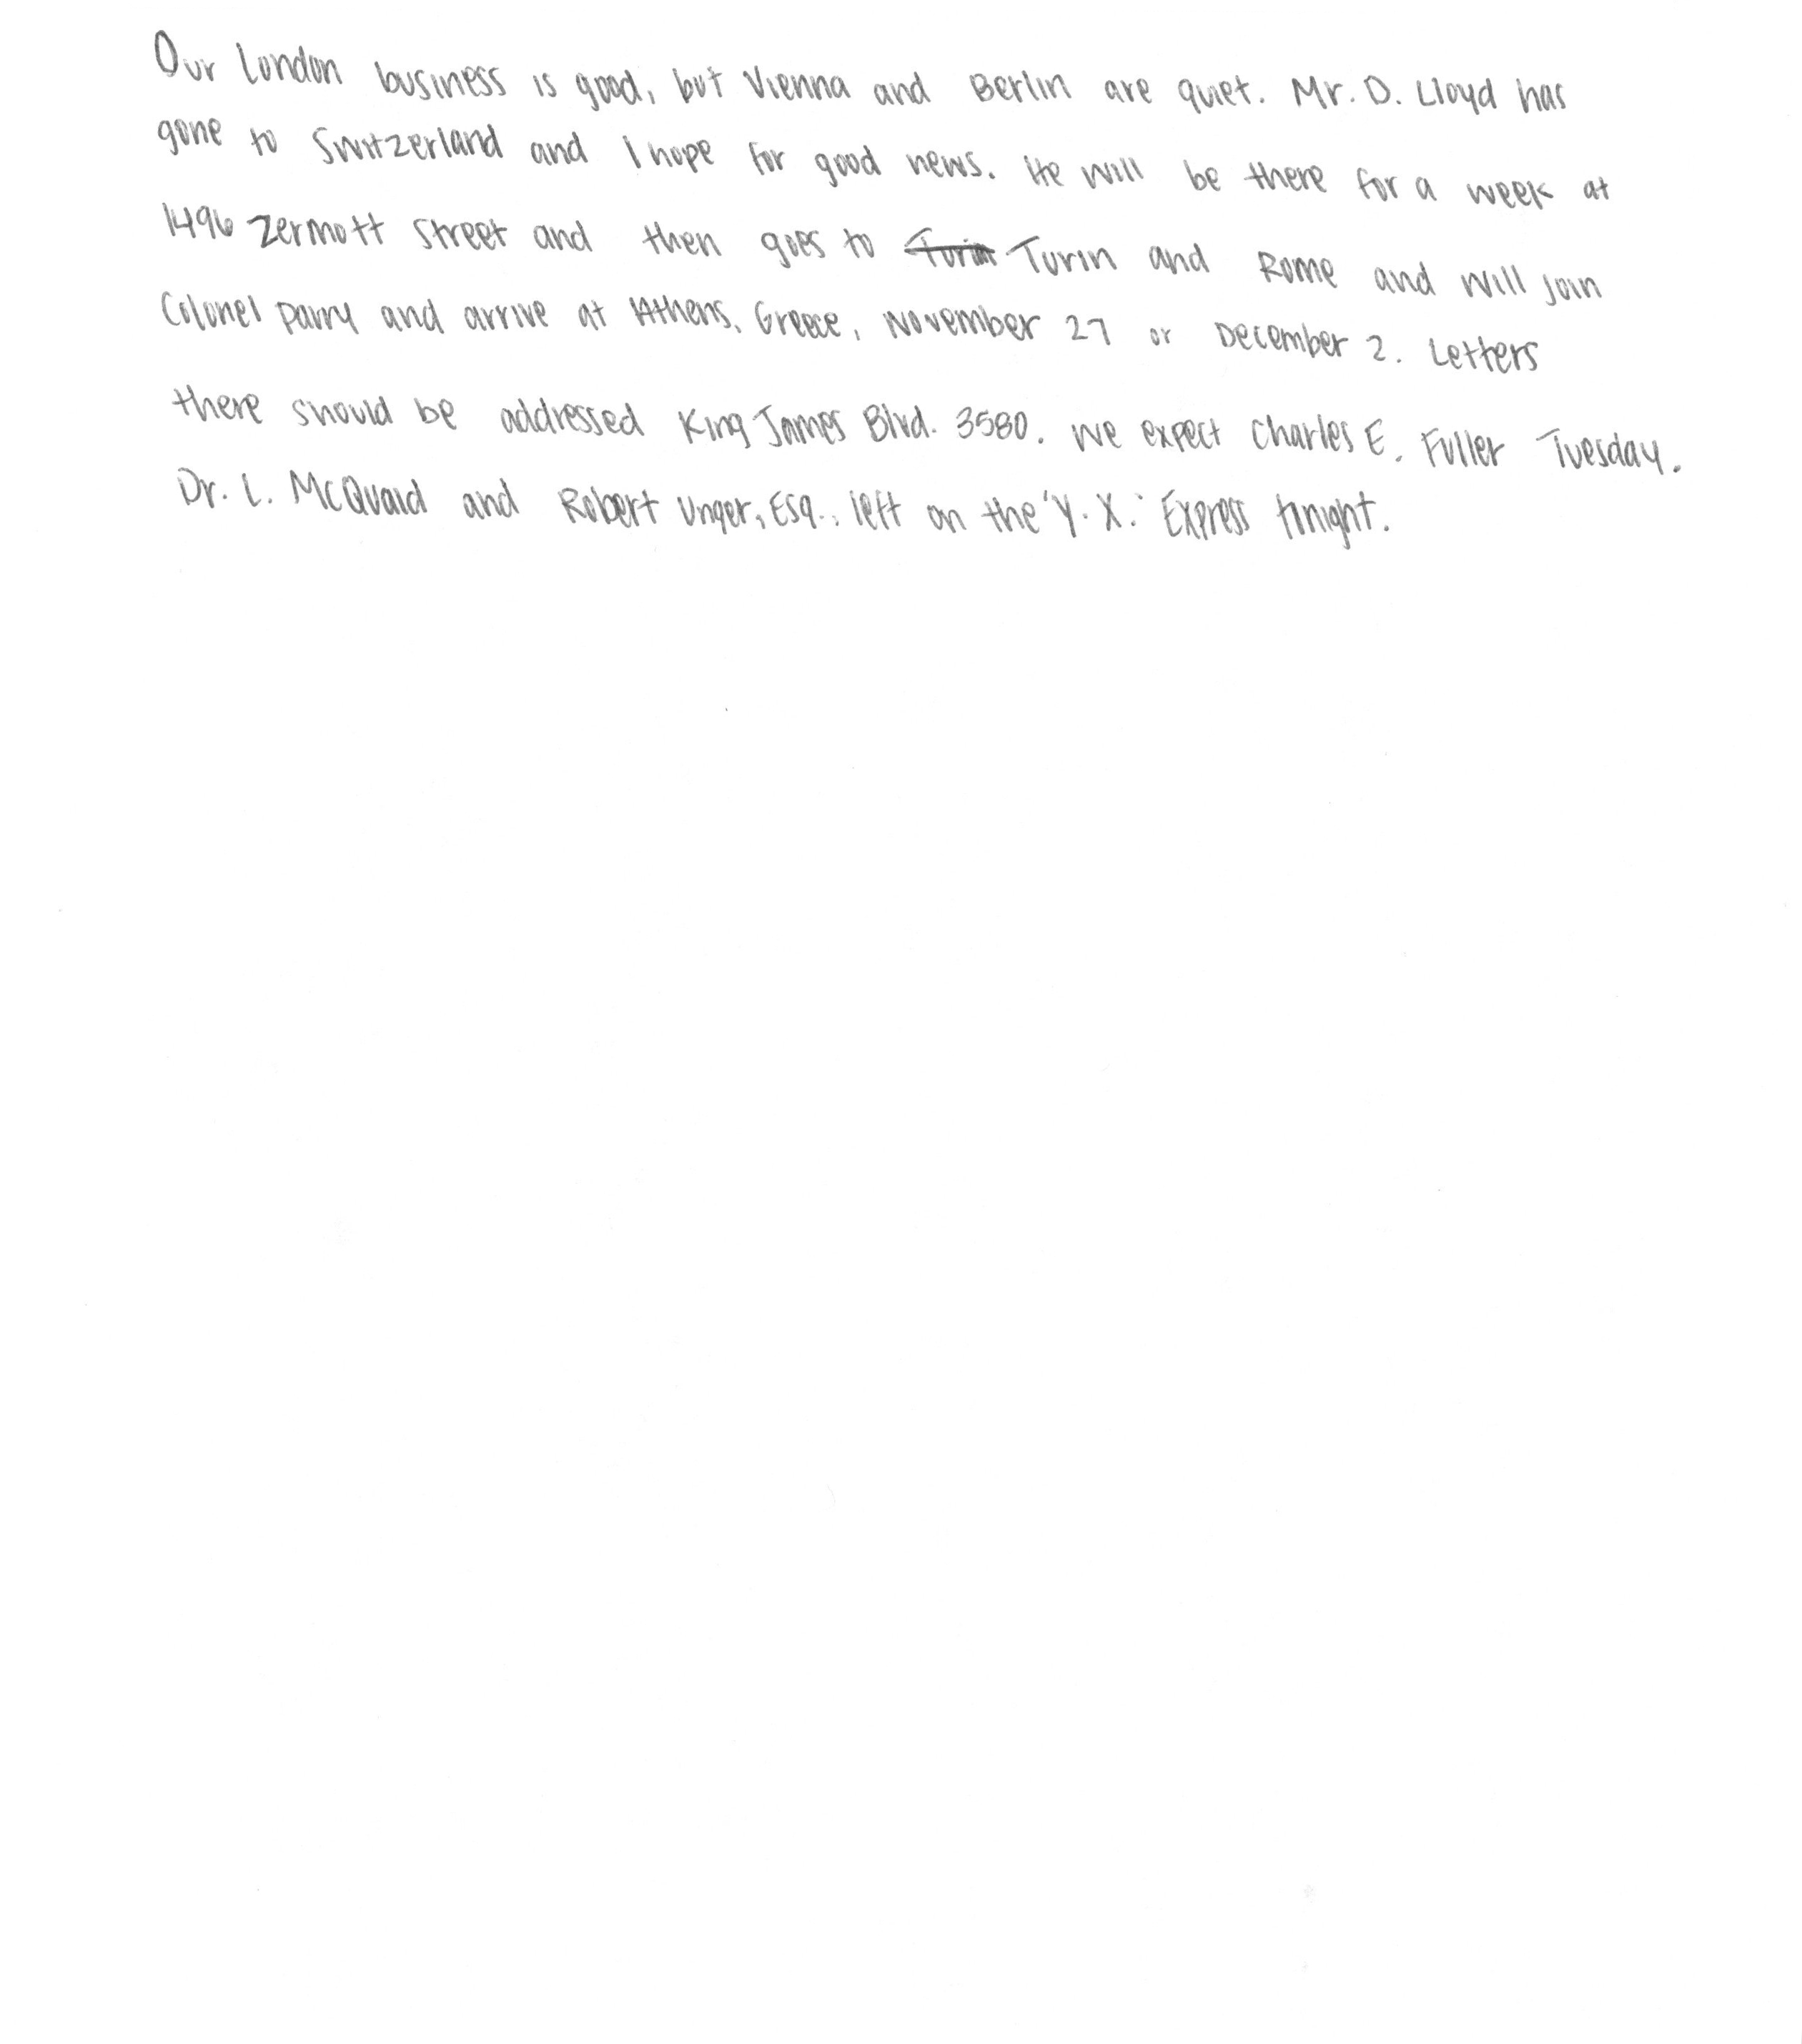 Our London business is good, but Vienna and Berlin are quiet. Mr. D. Lloyd has
gone to Switzerland and I hope for good news. He will be there for a week at
1496 Zermott Street and then goes to Turin Turin and Rome and will join
Colonel Parry and arrive at Athens, Greece, November 27 or December 2. Letters
there should be addressed King James Blvd. 3580. We expect Charles E. Fuller Tuesday.
Dr. L. McQuaid and Robert Unger, Esq., left on the 'Y. X.' Express tonight.